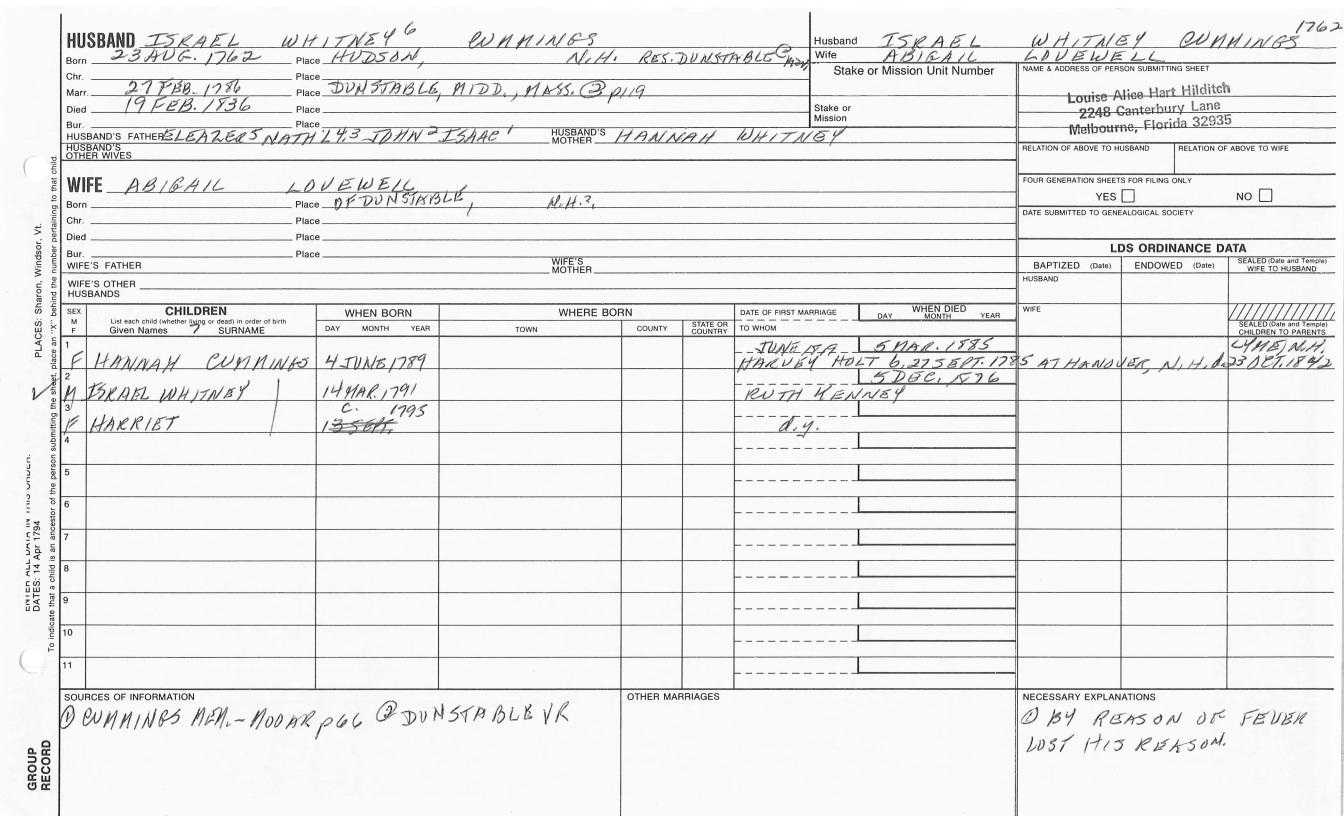 1762
HUSBAND ISRAEL WHITNEY 6 CUMMINGS
Born 23 AUG. 1762 Place HUDSON, N.H. RES. DUNSTABLE
Chr. Place
Marr. 27 FEB. 1786 Place DUNSTABLE, MIDD., MASS. ② p119
Died 19 FEB. 1836 Place
Bur. Place
HUSBAND'S FATHER ELEAZER 5 NATH'L 4.3 JOHN 2 ISAAC 1 HUSBAND'S MOTHER HANNAH WHITNEY
HUSBAND'S OTHER WIVES
Husband ISRAEL WHITNEY CUMMINGS
Wife ABIGAIL LOVEWELL
Stake or Mission Unit Number
Stake or Mission
NAME & ADDRESS OF PERSON SUBMITTING SHEET
Louise Alice Hart Hilditch
2248 Canterbury Lane
Melbourne, Florida 32935
RELATION OF ABOVE TO HUSBAND RELATION OF ABOVE TO WIFE
FOUR GENERATION SHEETS FOR FILING ONLY
YES NO
DATE SUBMITTED TO GENEALOGICAL SOCIETY
WIFE ABIGAIL LOVEWELL
Born Place OF DUNSTABLE, N.H.?,
Chr. Place
Died Place
Bur. Place
WIFE'S FATHER WIFE'S MOTHER
WIFE'S OTHER HUSBANDS
LDS ORDINANCE DATA
BAPTIZED (Date) ENDOWED (Date) SEALED (Date and Temple) WIFE TO HUSBAND
HUSBAND
WIFE
SEALED (Date and Temple) CHILDREN TO PARENTS
SEX M F
CHILDREN
List each child (whether living or dead) in order of birth
Given Names 7 SURNAME
WHEN BORN
DAY MONTH YEAR
WHERE BORN
TOWN COUNTY STATE OR COUNTRY
DATE OF FIRST MARRIAGE
TO WHOM
WHEN DIED
DAY MONTH YEAR
1 JUNE 5 MAR. 1885 LYME, N.H.
F HANNAH CUMMINGS 4 JUNE, 1789 HARVEY HOLT b. 27 SEPT. 1785 AT HANOVER, N.H. d. 23 OCT. 1842
2 5 DEC. 1876
M ISRAEL WHITNEY 14 MAR. 1791 RUTH KENNEY
3 C. 1795
F HARRIET d.y.
4
5
6
7
8
9
10
11
SOURCES OF INFORMATION
① CUMMINGS MEM. - MOOAR p66 ② DUNSTABLE VR
OTHER MARRIAGES
NECESSARY EXPLANATIONS
① BY REASON OF FEVER
LOST HIS REASON.
PLACES: Sharon, Windsor, Vt.
ENTER ALL DATA IN THIS ORDER:
DATES: 14 Apr 1794
To indicate that a child is an ancestor of the person submitting the sheet, place an "X" behind the number pertaining to that child.
GROUP RECORD